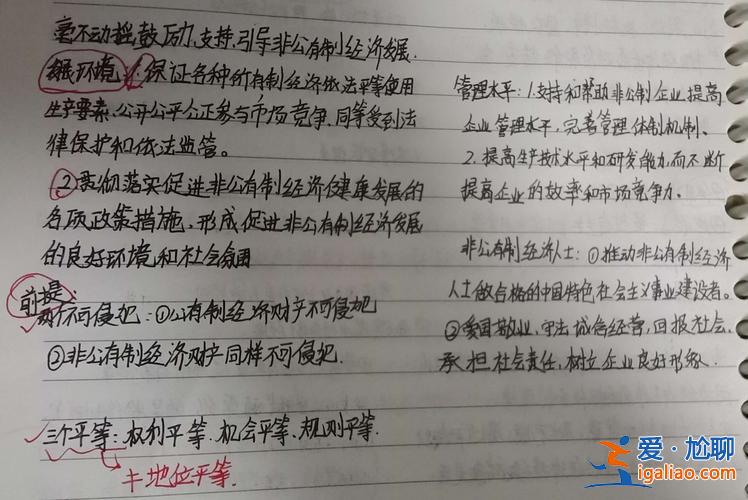 毫不动摇鼓励、支持、引导非公有制经济发展.
发展环境:①保证各种所有制经济依法平等使用
生产要素、公开公平公正参与市场竞争、同等受到法
律保护和依法监管。
②贯彻落实促进非公有制经济健康发展的
各项政策措施、形成促进非公有制经济发展
的良好环境和社会氛围
前提:
两个不可侵犯:①公有制经济财产不可侵犯
②非公有制经济财产同样不可侵犯.
三个平等:权利平等.机会平等、规则平等.
地位平等.
管理水平:1.支持和帮助非公制企业提高
企业管理水平,完善管理体制机制、
2.提高生产技术水平和研发能力,而不断
提高企业的效率和市场竞争力.
非公有制经济人士:①推动非公有制经济
人士做合格的中国特色社会主义事业建设者。
②爱国敬业、守法诚信经营、回报社会、
承担社会责任,树立企业良好形象.
爱·尬聊
igaliao.com